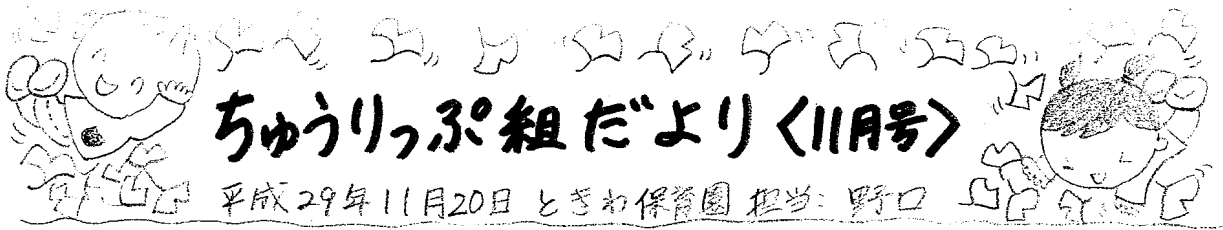 ちゅうりっぷ組だより〈11月号〉
平成29年11月20日 ときわ保育園 担当: 野口